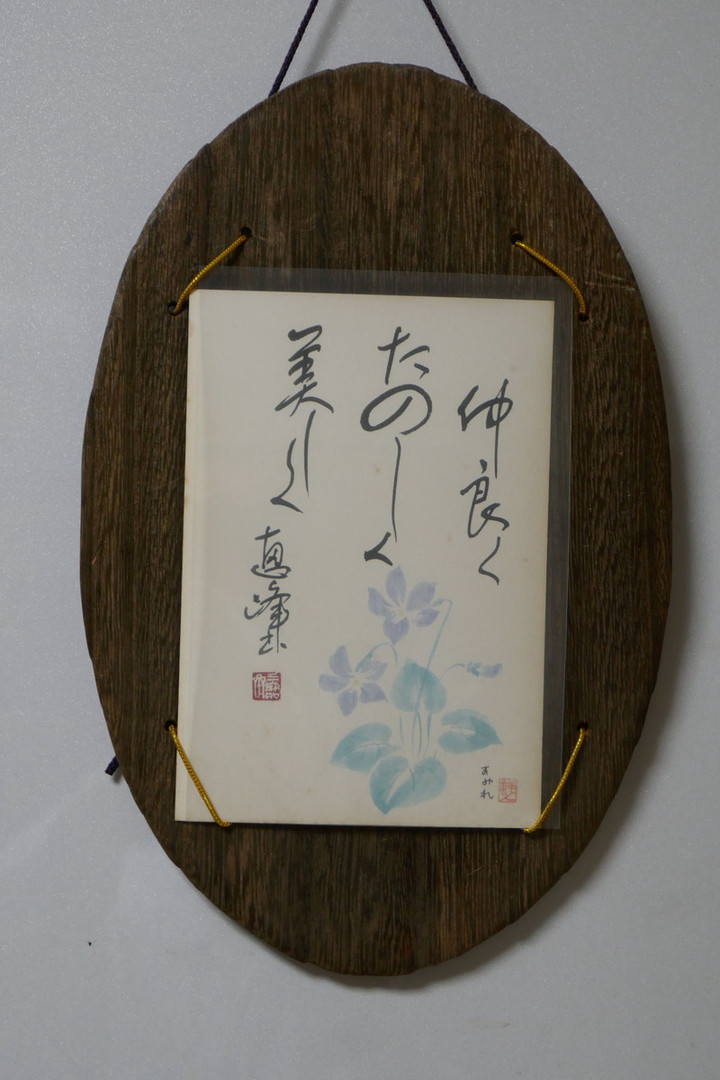 仲良く
たのしく
美しく
すみれ